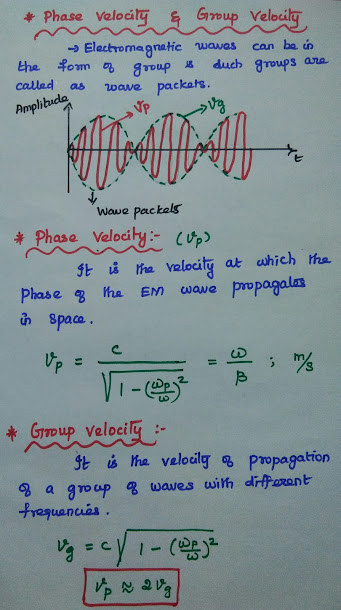 * Phase Velocity & Group Velocity
→ Electromagnetic waves can be in
the form of group & such groups are
called as wave packets.
Amplitude
Vp
Vg
t
Wave packets
* Phase Velocity:- (Vp)
It is the velocity at which the
Phase of the EM wave propagates
in space.
Vp = c / √(1 - (ωp/ω)²) = ω/β ; m/s
* Group Velocity :-
It is the velocity of propagation
of a group of waves with different
frequencies.
Vg = c √(1 - (ωp/ω)²)
Vp ≈ 2Vg